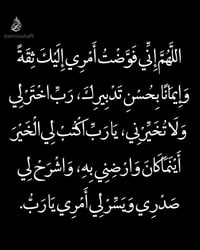 اللَّهُمَّ إِنِّي فَوَّضْتُ أَمْرِي إِلَيْكَ ثِقَةً
وَإِيمَانًا بِحُسْنِ تَدْبِيرِكَ، رَبِّ اخْتَرْ لِي
وَلَا تُخَيِّرْنِي، يَارَبِّ اكْتُبْ لِي الْخَيْرَ
أَيْنَمَا كَانَ وَارْضِنِي بِهِ، وَاشْرَحْ لِي
صَدْرِي وَيَسِّرْ لِي أَمْرِي يَارَبُّ.